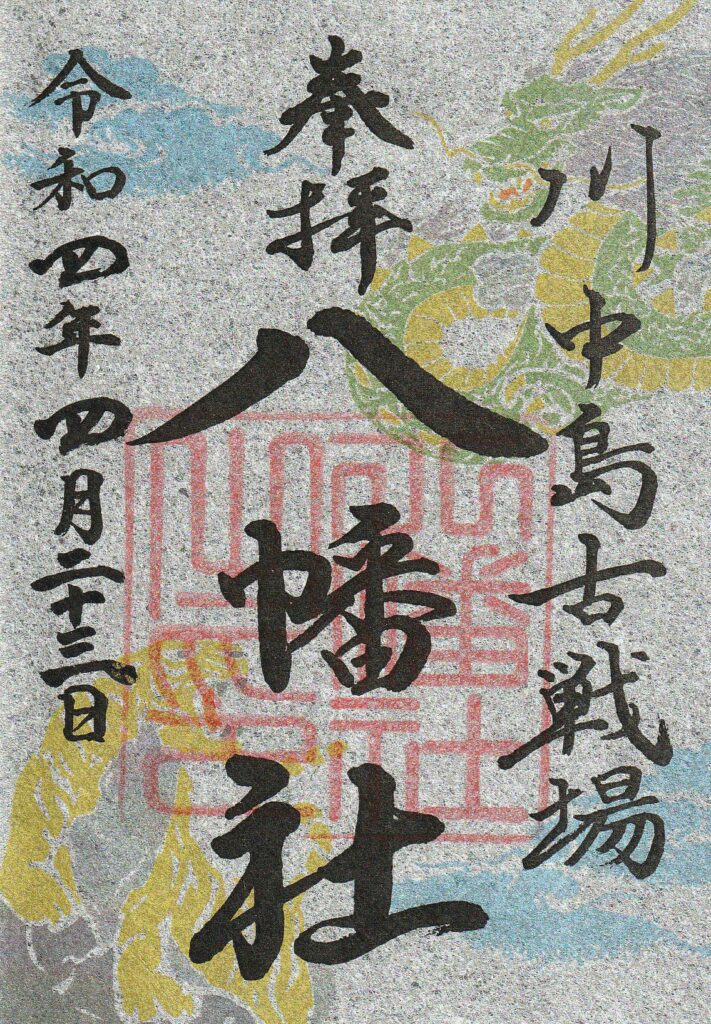 川中島古戦場
奉拝
八幡社
令和四年四月二十三日